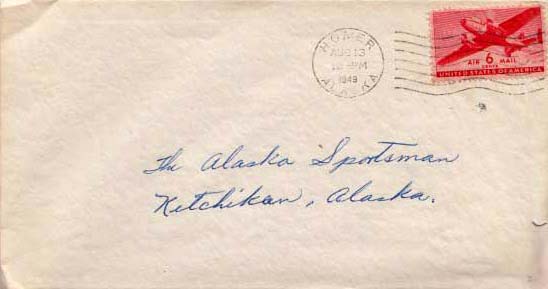 HOMER
AUG 13
PM
1949
ALASKA
AIR 6 MAIL
CENTS
UNITED STATES OF AMERICA
The Alaska Sportsman
Ketchikan, Alaska.